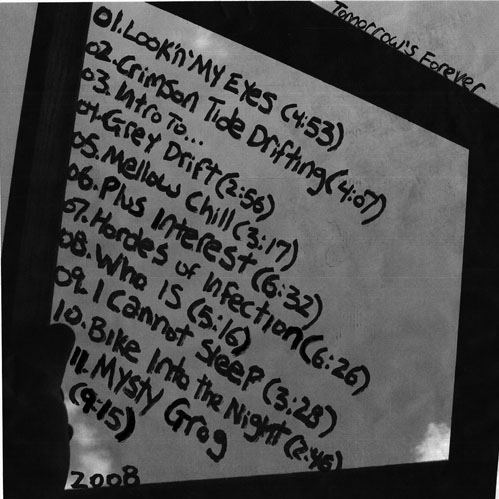 Tomorrow's Forever
01. Look'n' My Eyes (4:53)
02. Crimson Tide Drifting (4:07)
03. Intro To...
04. Grey Drift (2:56)
05. Mellow Chill (3:17)
06. Plus Interest (6:32)
07. Hordes of Infection (6:26)
08. Who is (5:16)
09. I Cannot Sleep (3:28)
10. Bike Into the Night (2:46)
11. Mysty Grog
(9:15)
2008